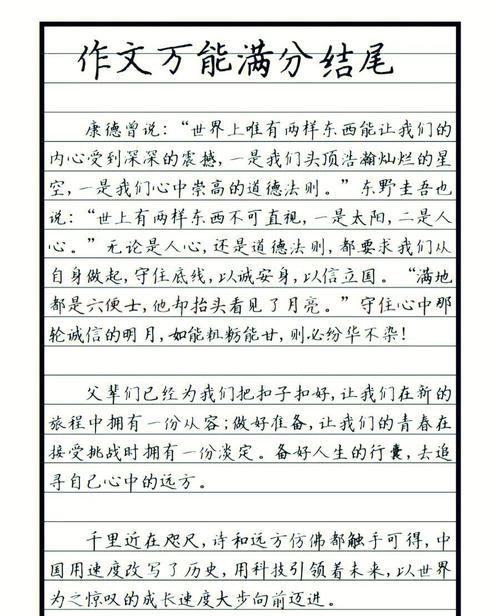 作文万能满分结尾
康德曾说：“世界上唯有两样东西能让我们的
内心受到深深的震撼，一是我们头顶浩瀚灿烂的星
空，一是我们心中崇高的道德法则。”东野圭吾也
说：“世上有两样东西不可直视，一是太阳，二是人
心。”无论是人心，还是道德法则，都要求我们从
自身做起，守住底线，以诚安身，以信立国。“满地
都是六便士，他却抬头看见了月亮。”守住心中那
轮诚信的明月，如能粗粝能甘，则必纷华不染！
父辈们已经为我们把扣子扣好，让我们在新的
旅程中拥有一份从容；做好准备，让我们的青春在
接受挑战时拥有一份淡定。备好人生的行囊，去追
寻自己心中的远方。
千里近在咫尺，诗和远方仿佛都触手可得，中
国用速度改写了历史，用科技引领着未来，以世界
为之惊叹的成长速度大步向前迈进。